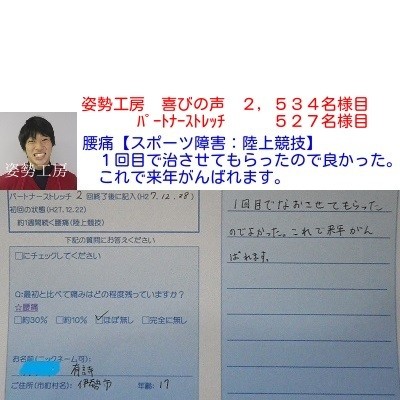 姿勢工房　喜びの声　２，５３４名様目
ﾊﾟｰﾄﾅｰｽﾄﾚｯﾁ　５２７名様目
腰痛【スポーツ障害：陸上競技】
１回目で治させてもらったので良かった。
これで来年がんばれます。
姿勢工房
パートナーストレッチ 2 回終了後に記入(H27.12.28)
初回の状態(H27.12.22)
約1週間続く腰痛(陸上競技)
下記の質問にお答えください
□にチェックしてください
Q:最初と比べて痛みはどの程度残っていますか?
☆腰痛
□約30% □約10% ☑ほぼ無し □完全に無し
お名前(ニックネーム可):
ご住所(市町村名): 伊勢市 年齢: 17
1回目でなおさせてもらった
のでよかった。これで来年がん
ばれます。